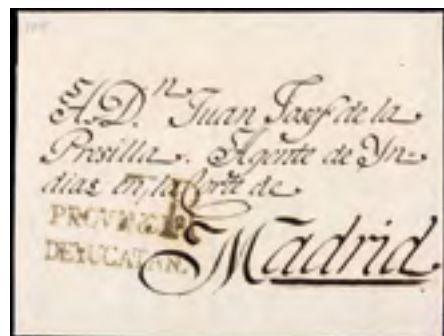 A D.n Juan Josef de la
Presilla. Agente de Yn-
dias en la Corte de
Madrid
PROVINCIA
DE YUCATAN.